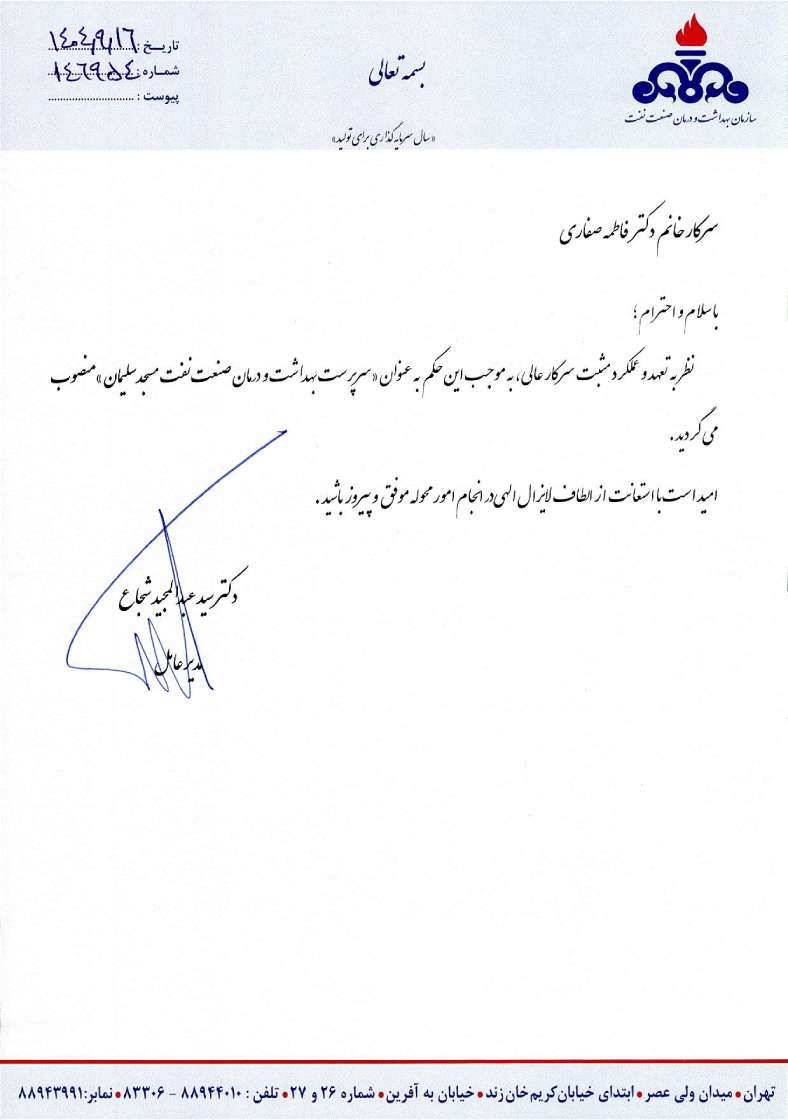 بسمه تعالی
«سال سرمایه گذاری برای تولید»
سازمان بهداشت و درمان صنعت نفت
تاریخ : ۱۴۰۴٫۹٫۱۶
شماره : ۱۴۶۹۵۴
پیوست :
سرکار خانم دکتر فاطمه صفاری
باسلام و احترام ؛
نظر به تعهد و عملکرد مثبت سرکار عالی، به موجب این حکم به عنوان «سرپرست بهداشت و درمان صنعت نفت مسجد سلیمان» منصوب
می گردید.
امید است با استعانت از الطاف لایزال الهی در انجام امور محوله موفق و پیروز باشید .
دکتر سید عبدالمجید شجاع
مدیر عامل
تهران • میدان ولی عصر • ابتدای خیابان کریم خان زند • خیابان به آفرین • شماره ۲۶ و ۲۷ • تلفن : ۸۸۹۴۴۰۱۰ - ۸۳۳۰۶ • نمابر: ۸۸۹۴۳۹۹۱